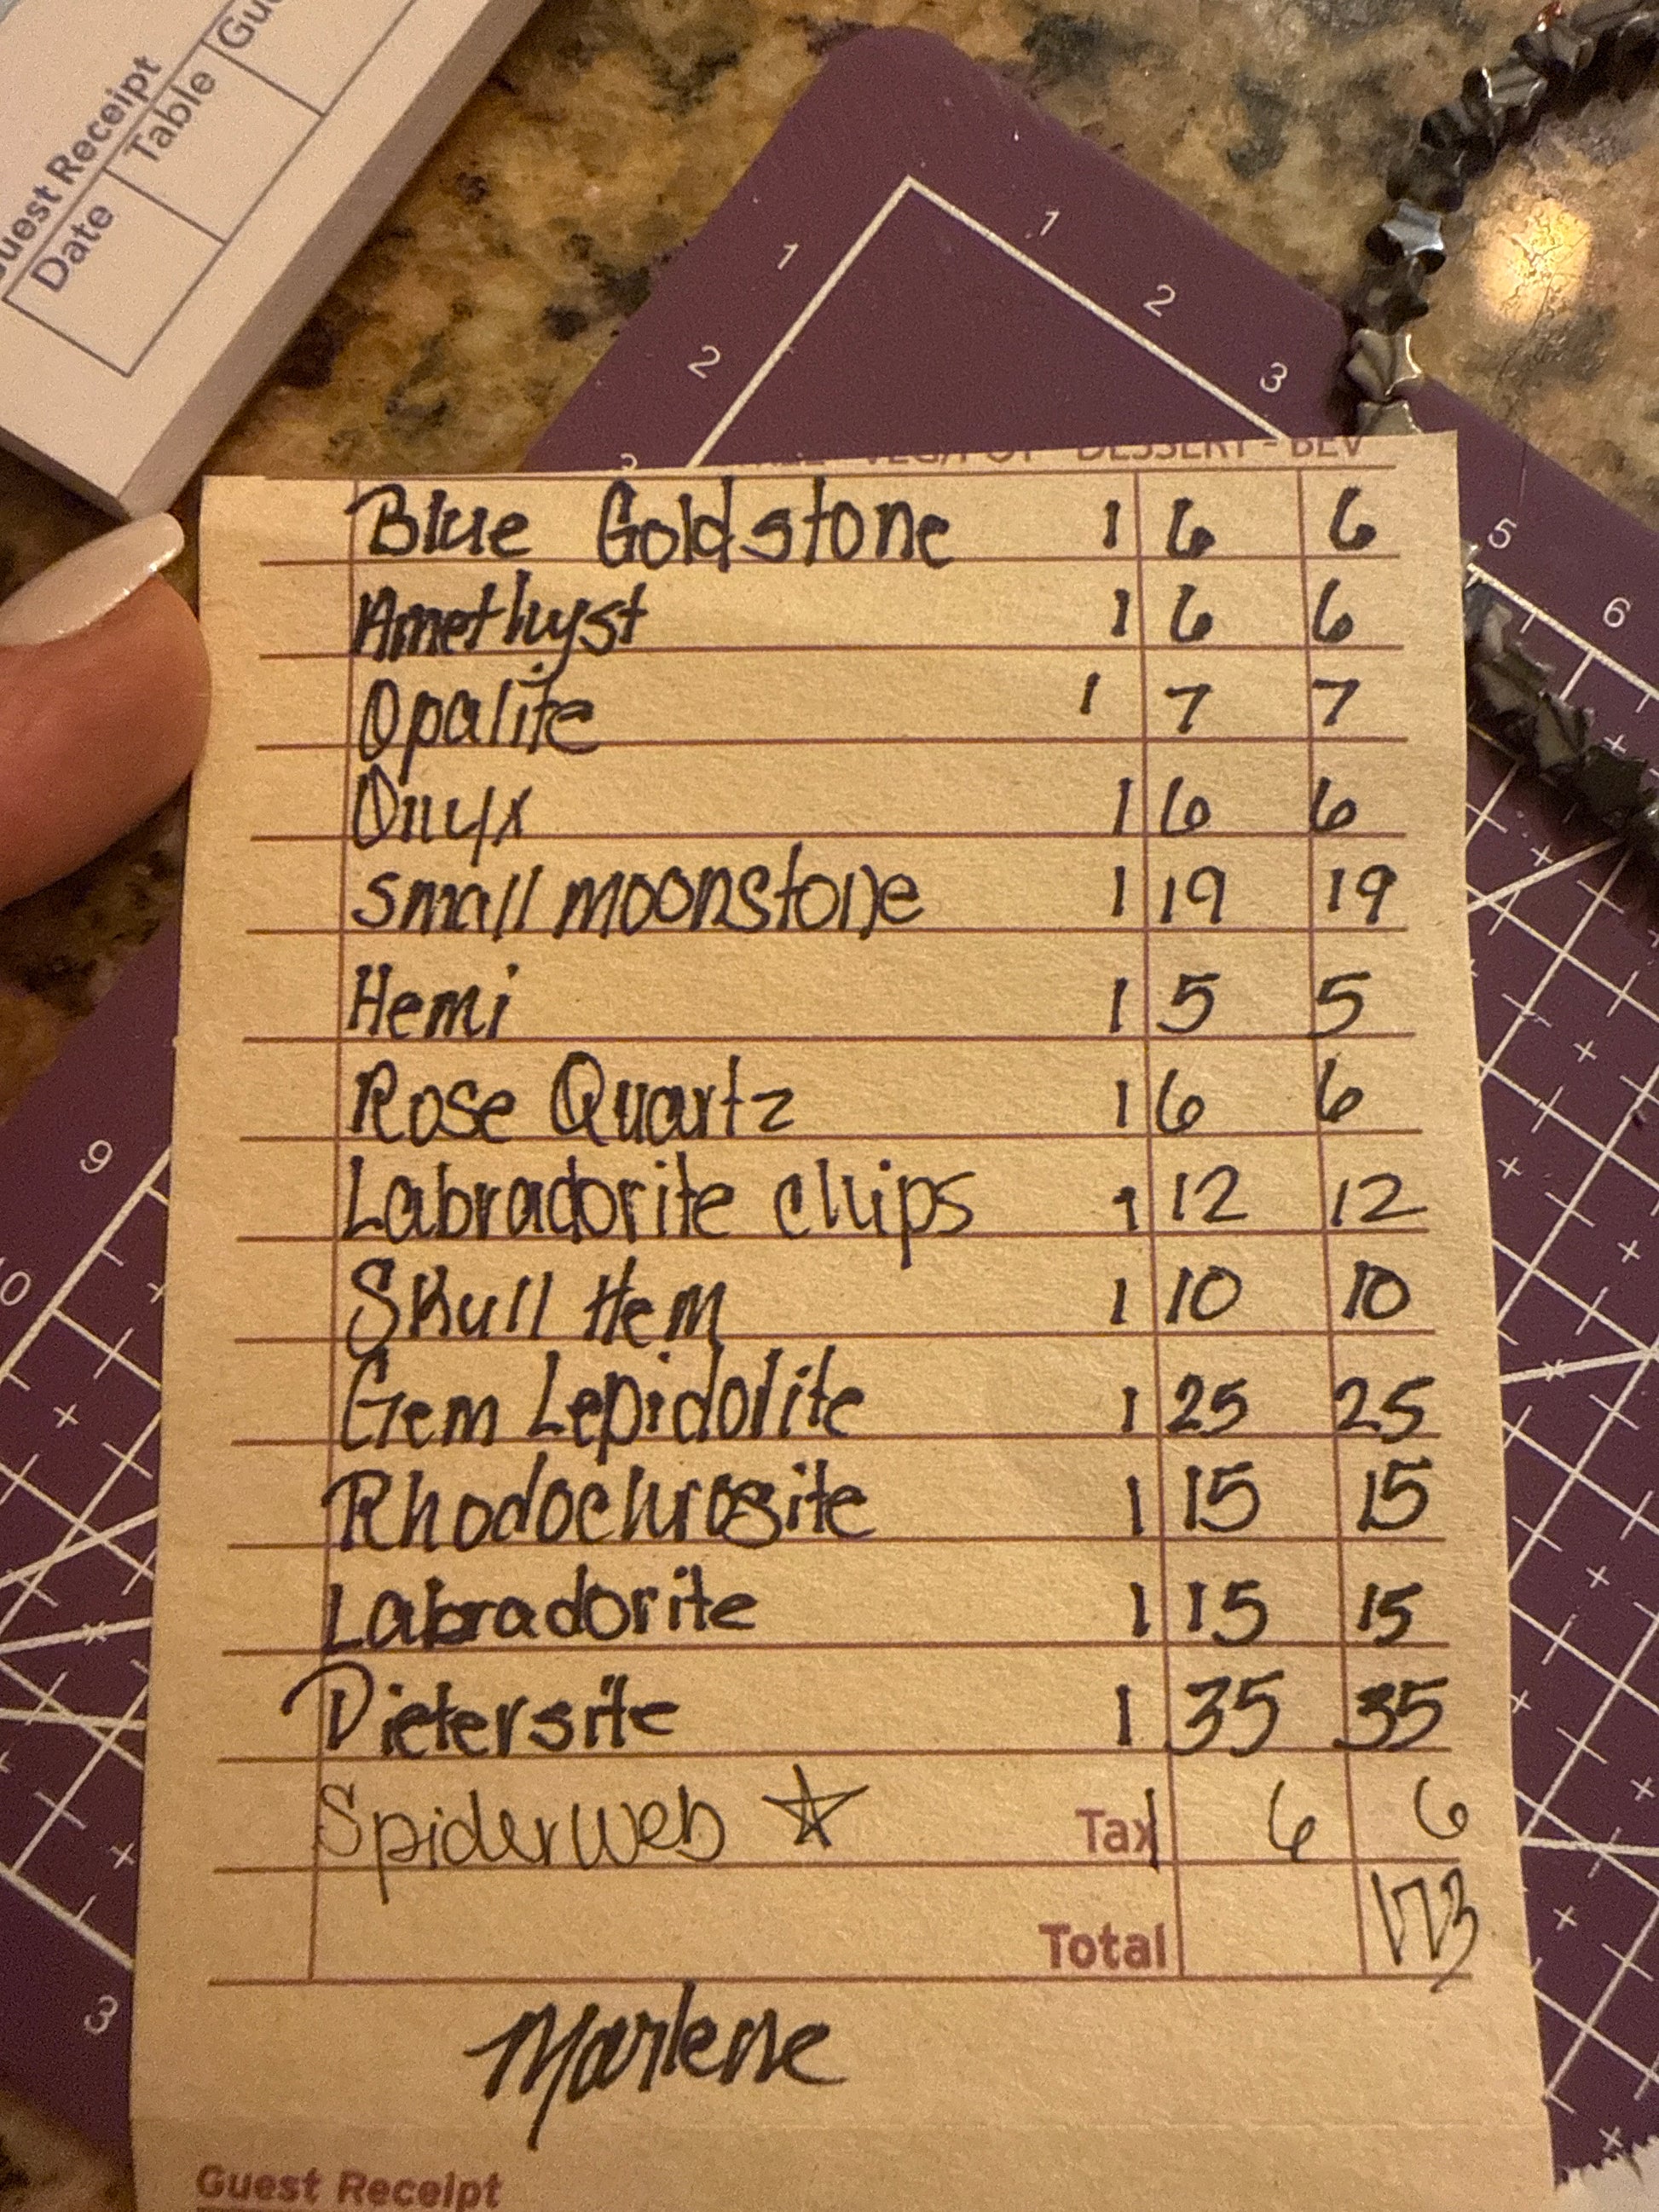 Guest Receipt
Date
Table
Gu
1
2
3
1
2
3
5
6
VEG/POT - DESSERT - BEV
Blue Goldstone 1 6 6
Amethyst 1 6 6
Opalite 1 7 7
Onyx 1 6 6
small moonstone 1 19 19
Hemi 1 5 5
Rose Quartz 1 6 6
Labradorite chips 1 12 12
Skull Hem 1 10 10
Gem Lepidolite 1 25 25
Rhodochrosite 1 15 15
Labradorite 1 15 15
Pietersite 1 35 35
Spiderweb ☆ Tax 1 6 6
Total 173
Marlene
Guest Receipt
9
10
3